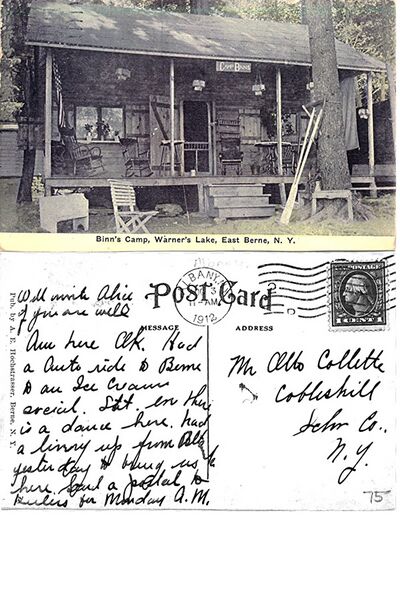 CAMP BINNS
Binn's Camp, Warner's Lake, East Berne, N. Y.
Well write Alice
if you are well
Post Card
ALBANY, N.Y.
3
11-AM
1912
MESSAGE
ADDRESS
Pub. by A. E. Hochstrasser, Berne, N. Y.
Am here OK. Had
a Auto ride to Berne
to an Ice Cream
social. Sat. eve there
is a dance here. had
a livery up from
yesterday to bring us
here. Send a postal to
for Monday A.M.
Mr Otto Collette
Cobleskill
Scho Co.
N.Y.
75